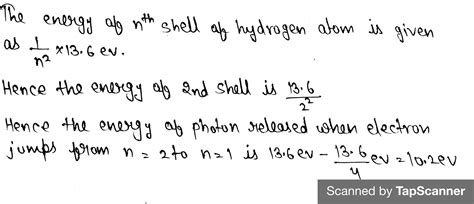 The energy of nth shell of hydrogen atom is given
as 1/n² × 13.6 ev.
Hence the energy of 2nd shell is 13.6/2²
Hence the energy of photon released when electron
jumps from n = 2 to n = 1 is 13.6 ev - 13.6/4 ev = 10.2 ev
Scanned by TapScanner